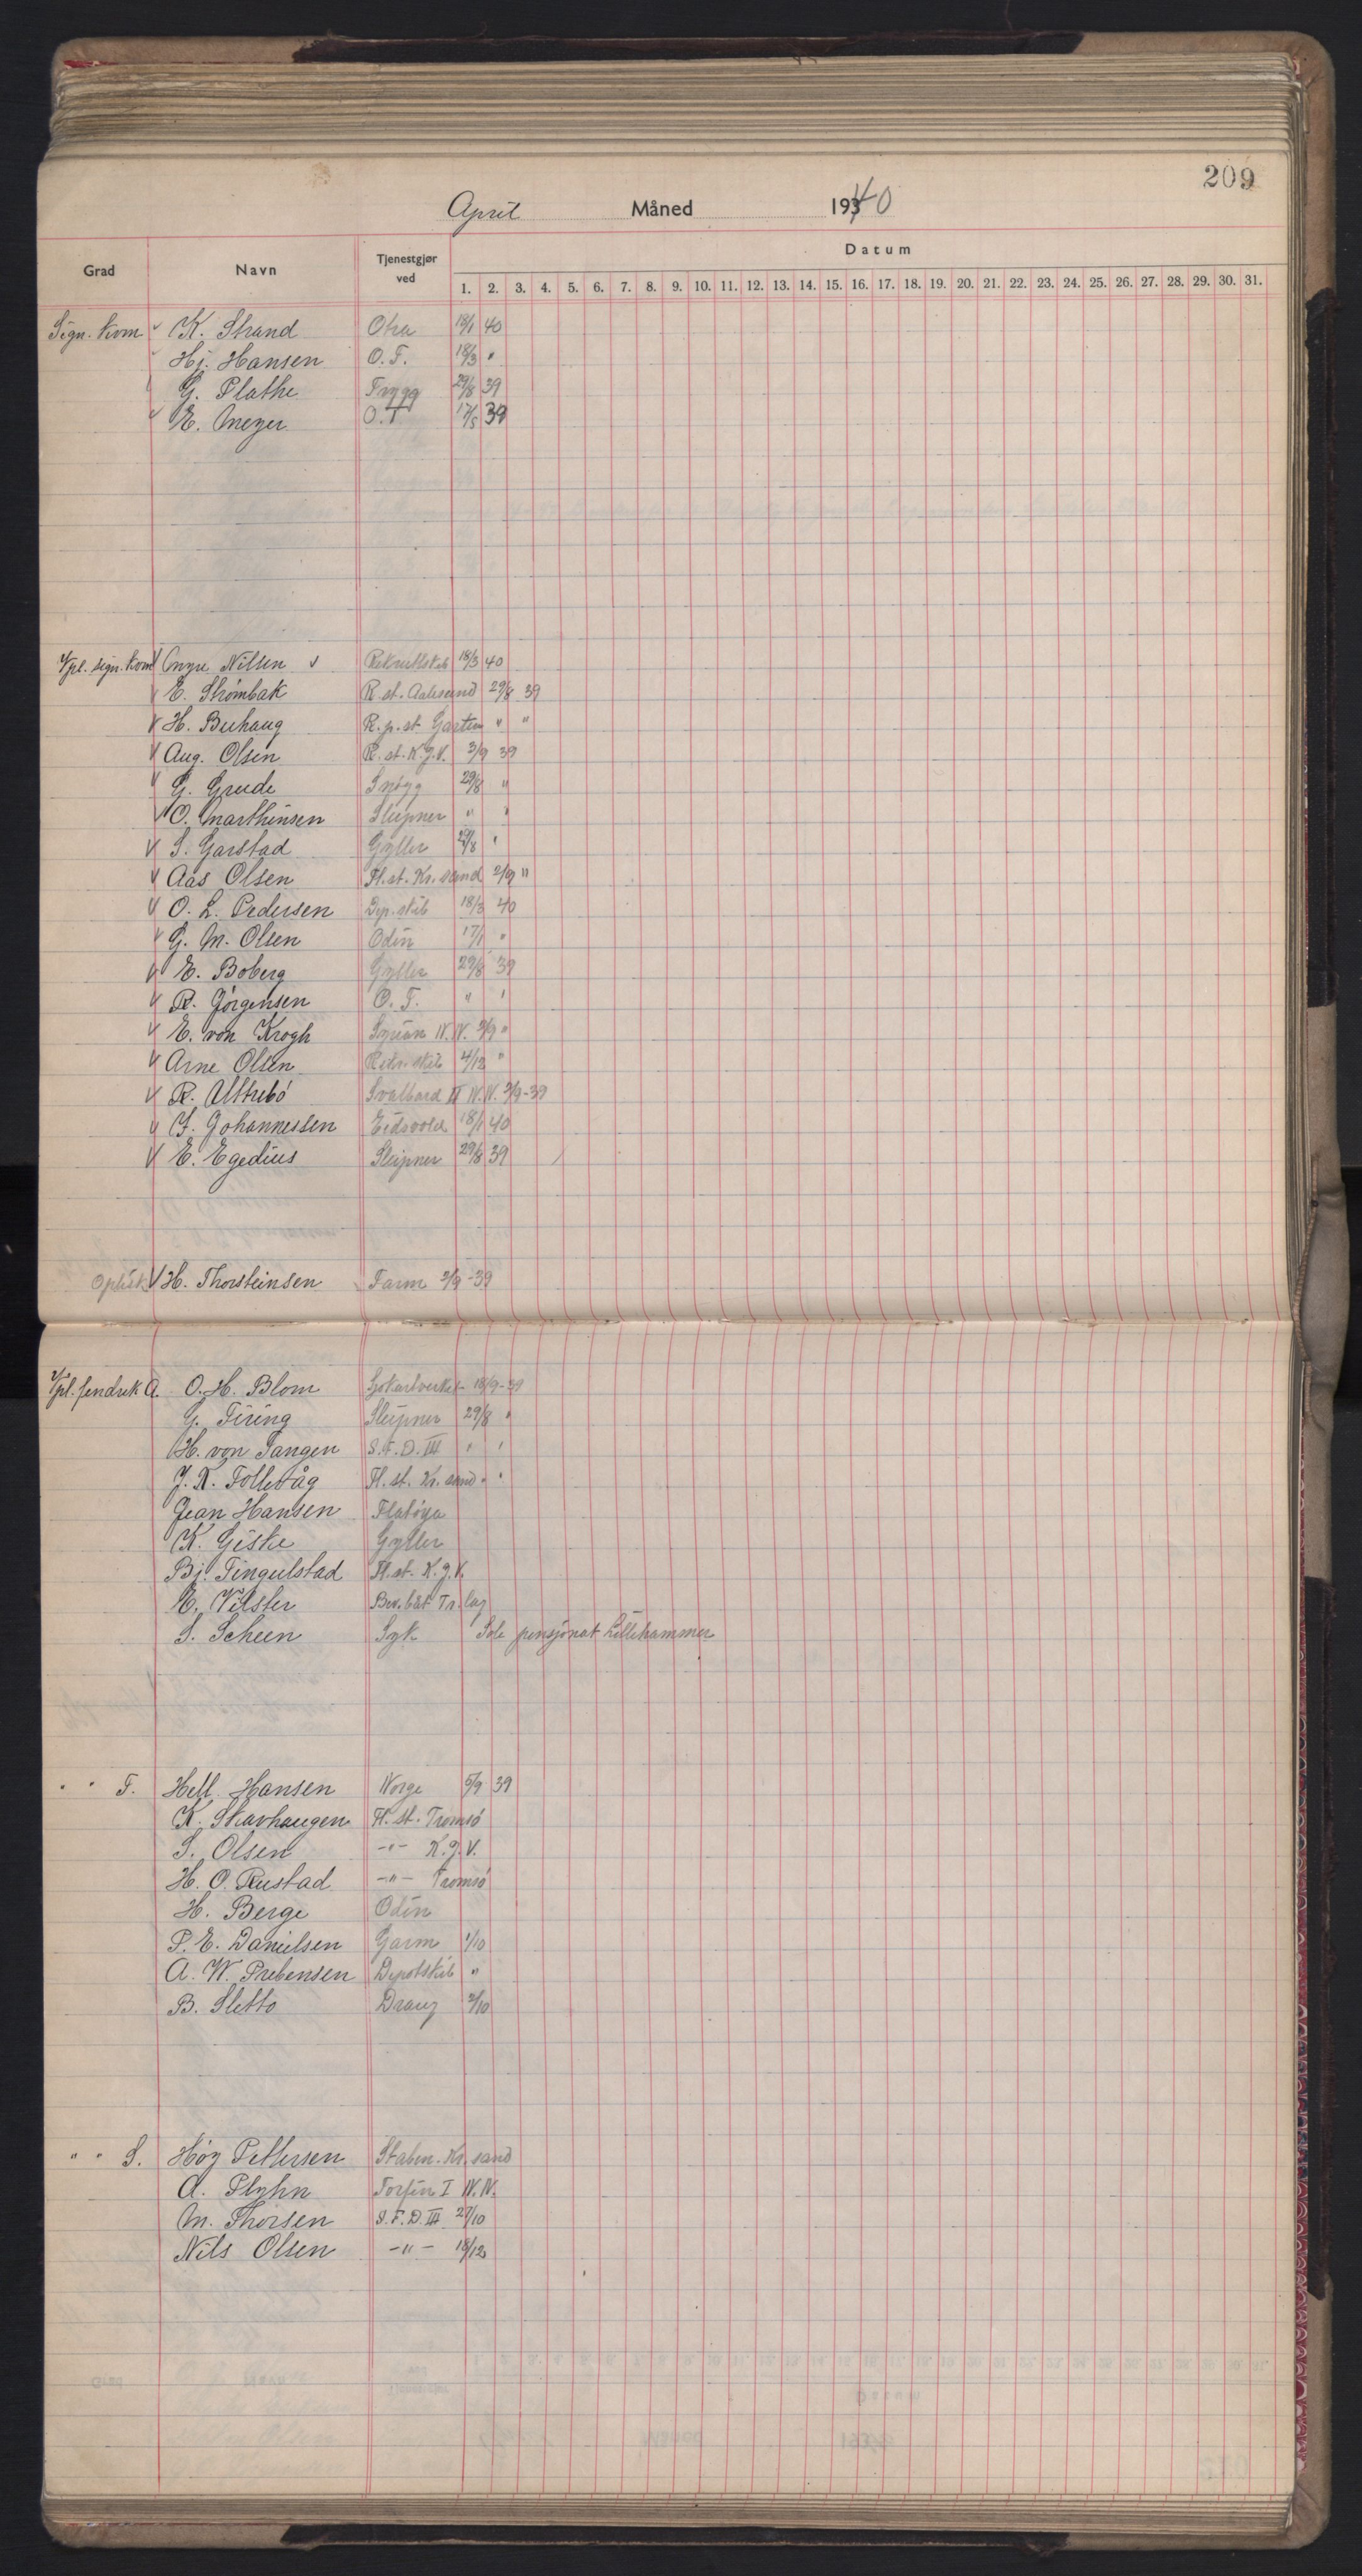 209
April Måned 1940
Grad Navn Tjenestgjør ved Datum
1. 2. 3. 4. 5. 6. 7. 8. 9. 10. 11. 12. 13. 14. 15. 16. 17. 18. 19. 20. 21. 22. 23. 24. 25. 26. 27. 28. 29. 30. 31.
Sign. kom K. Strand Otra 18/1 40
Hj. Hansen O. T. 18/3 "
G. Plathe Trygg 29/8 39
E. Meyer O. T 17/5 39
Vpl. sign. kom Myre Nilsen Rekruttskib 18/3 40
E. Strømbak R. st. Aalesund 29/8 39
H. Buhaug R. p. st. Garten " "
Aug. Olsen R. st. K. J. V. 3/9 39
G. Grude Snøgg 29/8 "
O. Marthinsen Sleipner " "
S. Garstad Gyller 29/8 "
Aas Olsen Fl. st. Kr. sand 2/9 "
O. L. Pedersen Dep. skib 18/3 40
G. M. Olsen Odin 17/1 "
E. Boberg Gyller 29/8 39
R. Jørgensen O. T. " "
E. von Krogh Syrian N. V. 2/9 "
Arne Olsen Rekr. skib 4/12 "
R. Ulstrebø Svalbard II N. V. 2/9-39
S. Johannessen Eidsvold 18/1 40
E. Egedius Sleipner 29/8 39
Optisk H. Thorsteinsen Farm 2/9-39
Vpl. fendrik A. O. H. Blom Sjøkartverket 18/9-39
G. Tiring Sleipner 29/8 "
H. von Tangen S. F. D. III " "
J. K. Follevåg Fl. st. Kr. sand " "
Jean Hansen Flatøya
K. Giske Gyller
Bj. Tingulstad Fl. st. K. J. V.
E. Vilster Bev. båt Tr. lag
S. Scheen Syk Sole pensjonat Lillehammer
" " T. Hell. Hansen Norge 5/9 39
K. Skavhaugen Fl. st. Tromsø
S. Olsen -"- K. J. V.
H. O. Rustad -"- Tromsø
H. Berge Odin
P. E. Danielsen Garm 1/10
A. W. Prebensen Depotskib "
B. Sletto Draug 2/10
" " S. Høy Pettersen Staben. Kr. sand
A. Plyhn Torfin I N. V.
M. Thorsen S. F. D. III 27/10
Nils Olsen -"- 18/12